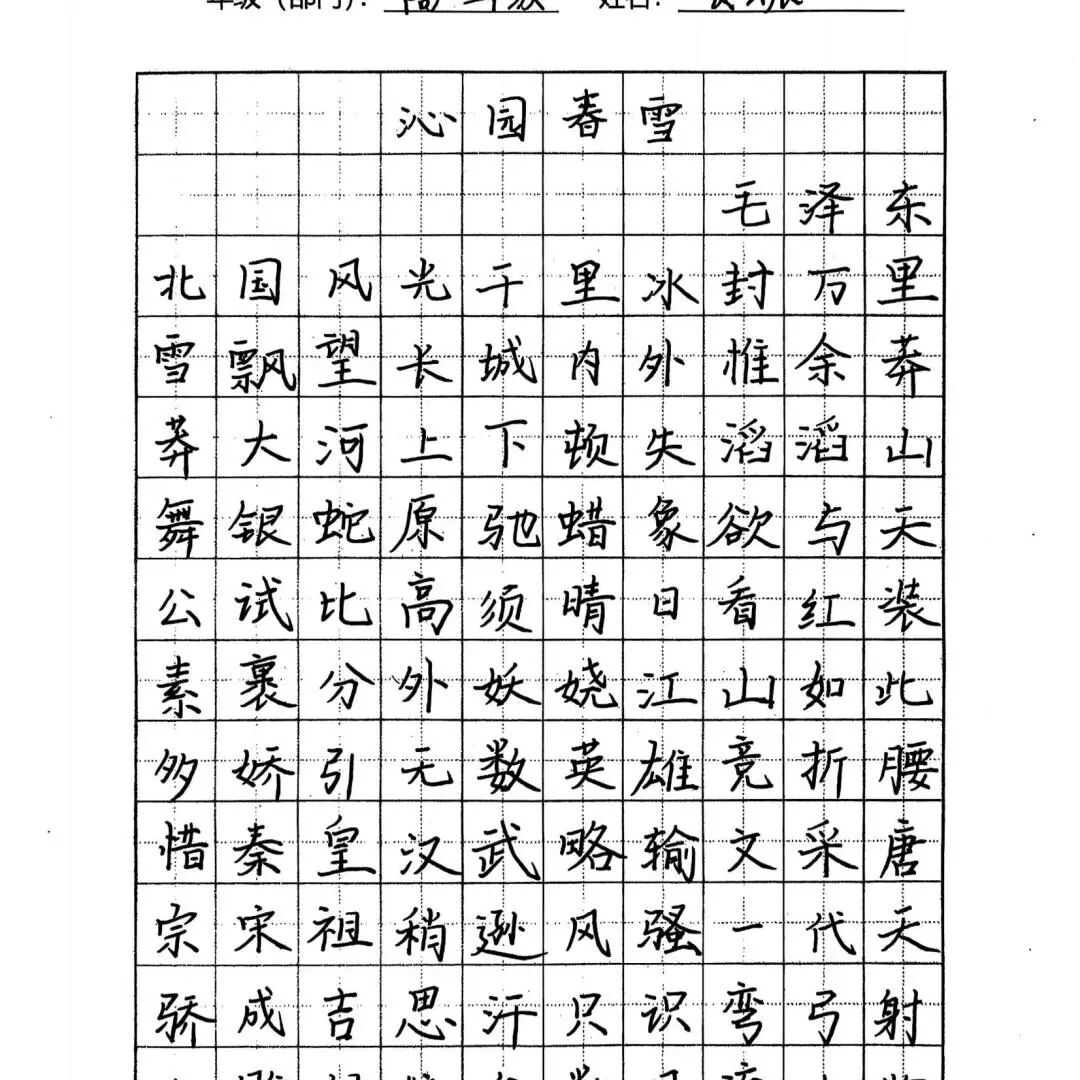 年级（部门）： 高一年级 姓名：
沁园春雪
毛泽东
北国风光千里冰封万里
雪飘望长城内外惟余莽
莽大河上下顿失滔滔山
舞银蛇原驰蜡象欲与天
公试比高须晴日看红装
素裹分外妖娆江山如此
多娇引无数英雄竞折腰
惜秦皇汉武略输文采唐
宗宋祖稍逊风骚一代天
骄成吉思汗只识弯弓射